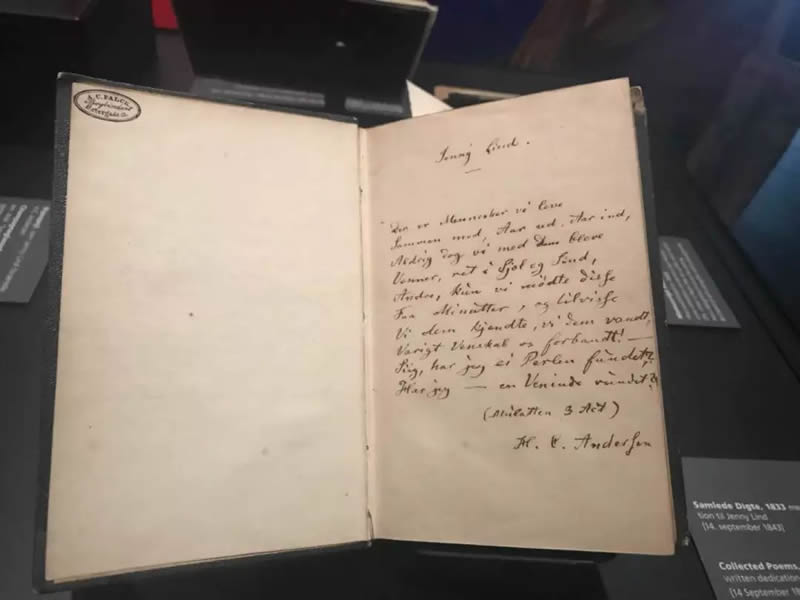 A. C. FALCK
Jenny Lind.
Der er Mennesker vi leve
Sammen med, Aar ud, Aar ind,
Aldrig dog vi med dem bleve
Venner, ret i Sjæl og Sind,
Andre, kun vi mödte disse
Faa Minutter, og tilvisse
Vi dem kjendte, vi dem vandt,
Varigt Venskab os forbandt! —
Siig, har jeg ei Perlen fundet?
Har jeg — en Veninde vundet?
(Mulatten 3 Act)
H. C. Andersen
Samlede Digte, 1833
tion til Jenny Lind
[14. september 1843]
Collected Poems,
written dedication
[14 September